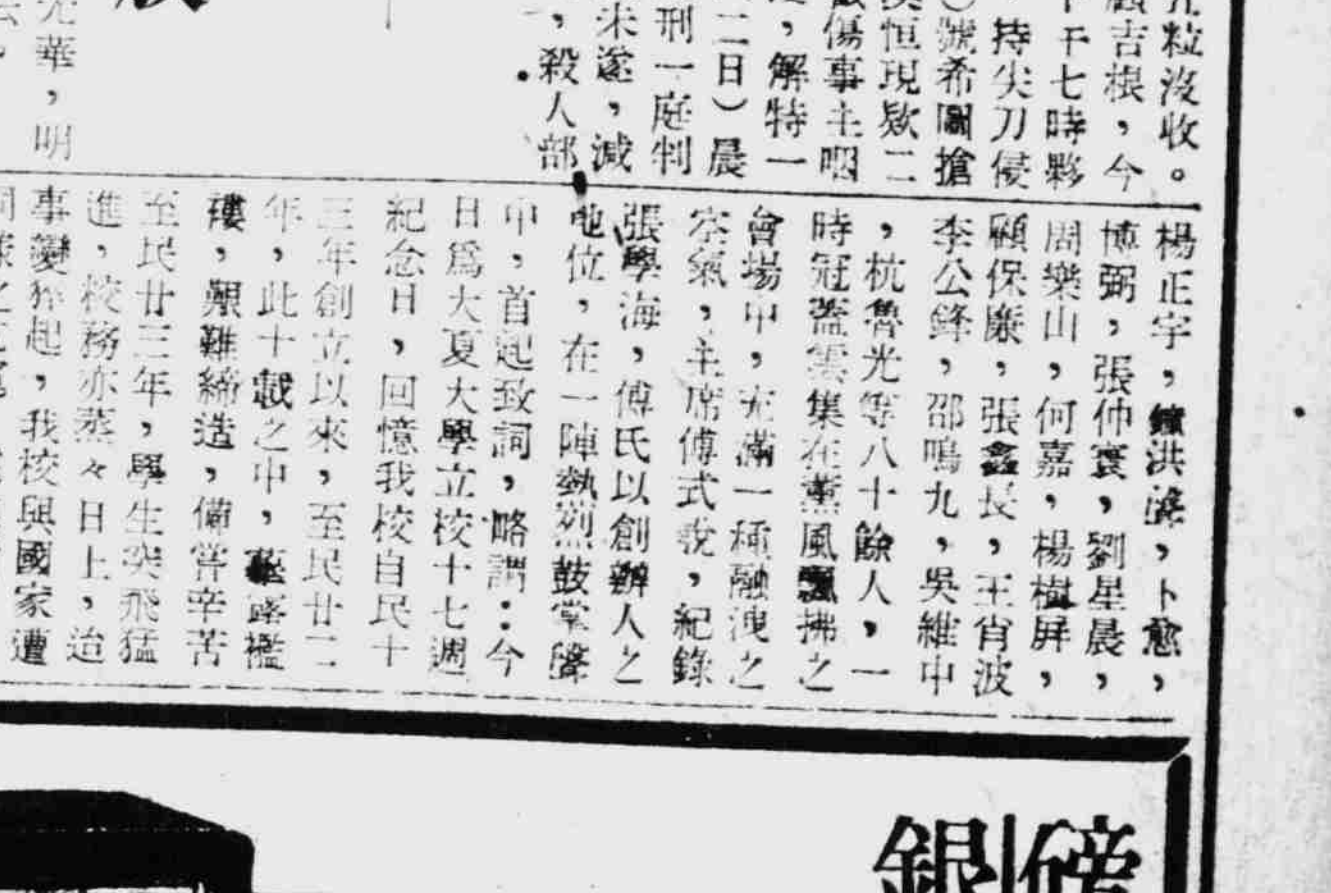 粒沒收。
顧吉根，今
午七時夥
持尖刀侵
號希圖搶
恒現欵二
傷事主咽
，解特一
二日）晨
刑一庭判
未遂，減
，殺人部
華，明
楊正宇，鍾洪聲，卜愈，
博弼，張仲寰，劉星晨，
周樂山，何嘉，楊樹屏，
顧保廉，張鑫長，王肖波
李公鋒，邵鳴九，吳維中
，杭魯光等八十餘人，一
時冠蓋雲集在薰風飄拂之
會場中，充滿一種融洩之
空氣，主席傅式說，紀錄
張學海，傅氏以創辦人之
地位，在一陣熱烈鼓掌聲
中，首起致詞，略謂：今
日爲大夏大學立校十七週
紀念日，回憶我校自民十
三年創立以來，至民廿二
年，此十載之中，蓽路襤
褸，艱難締造，備嘗辛苦
至民廿三年，學生突飛猛
進，校務亦蒸々日上，迨
事變猝起，我校與國家遭
磅
銀